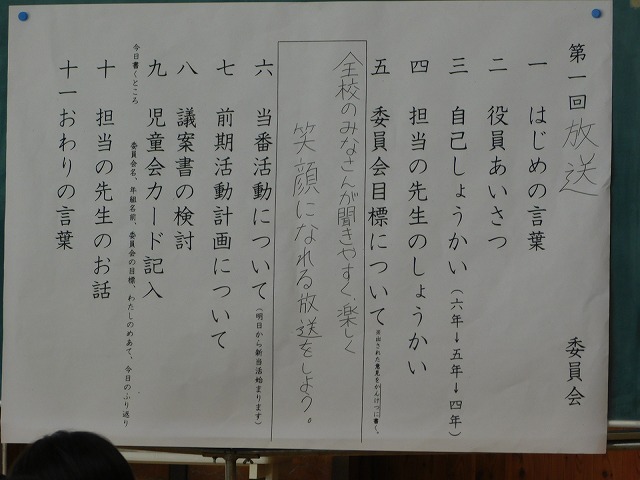 第一回 放送 委員会
一 はじめの言葉
二 役員あいさつ
三 自己しょうかい（六年→五年→四年）
四 担当の先生のしょうかい
五 委員会目標について ※出された意見をかんけつに書く。
全校のみなさんが聞きやすく、楽しく
笑顔になれる放送をしよう。
六 当番活動について（明日から新当活始まります）
七 前期活動計画について
八 議案書の検討
九 児童会カード記入
今日書くところ 委員会名、年組名前、委員会の目標、わたしのめあて、今日のふり返り
十 担当の先生のお話
十一 おわりの言葉